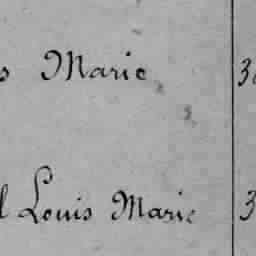 s Marie 3
l Louis Marie 3